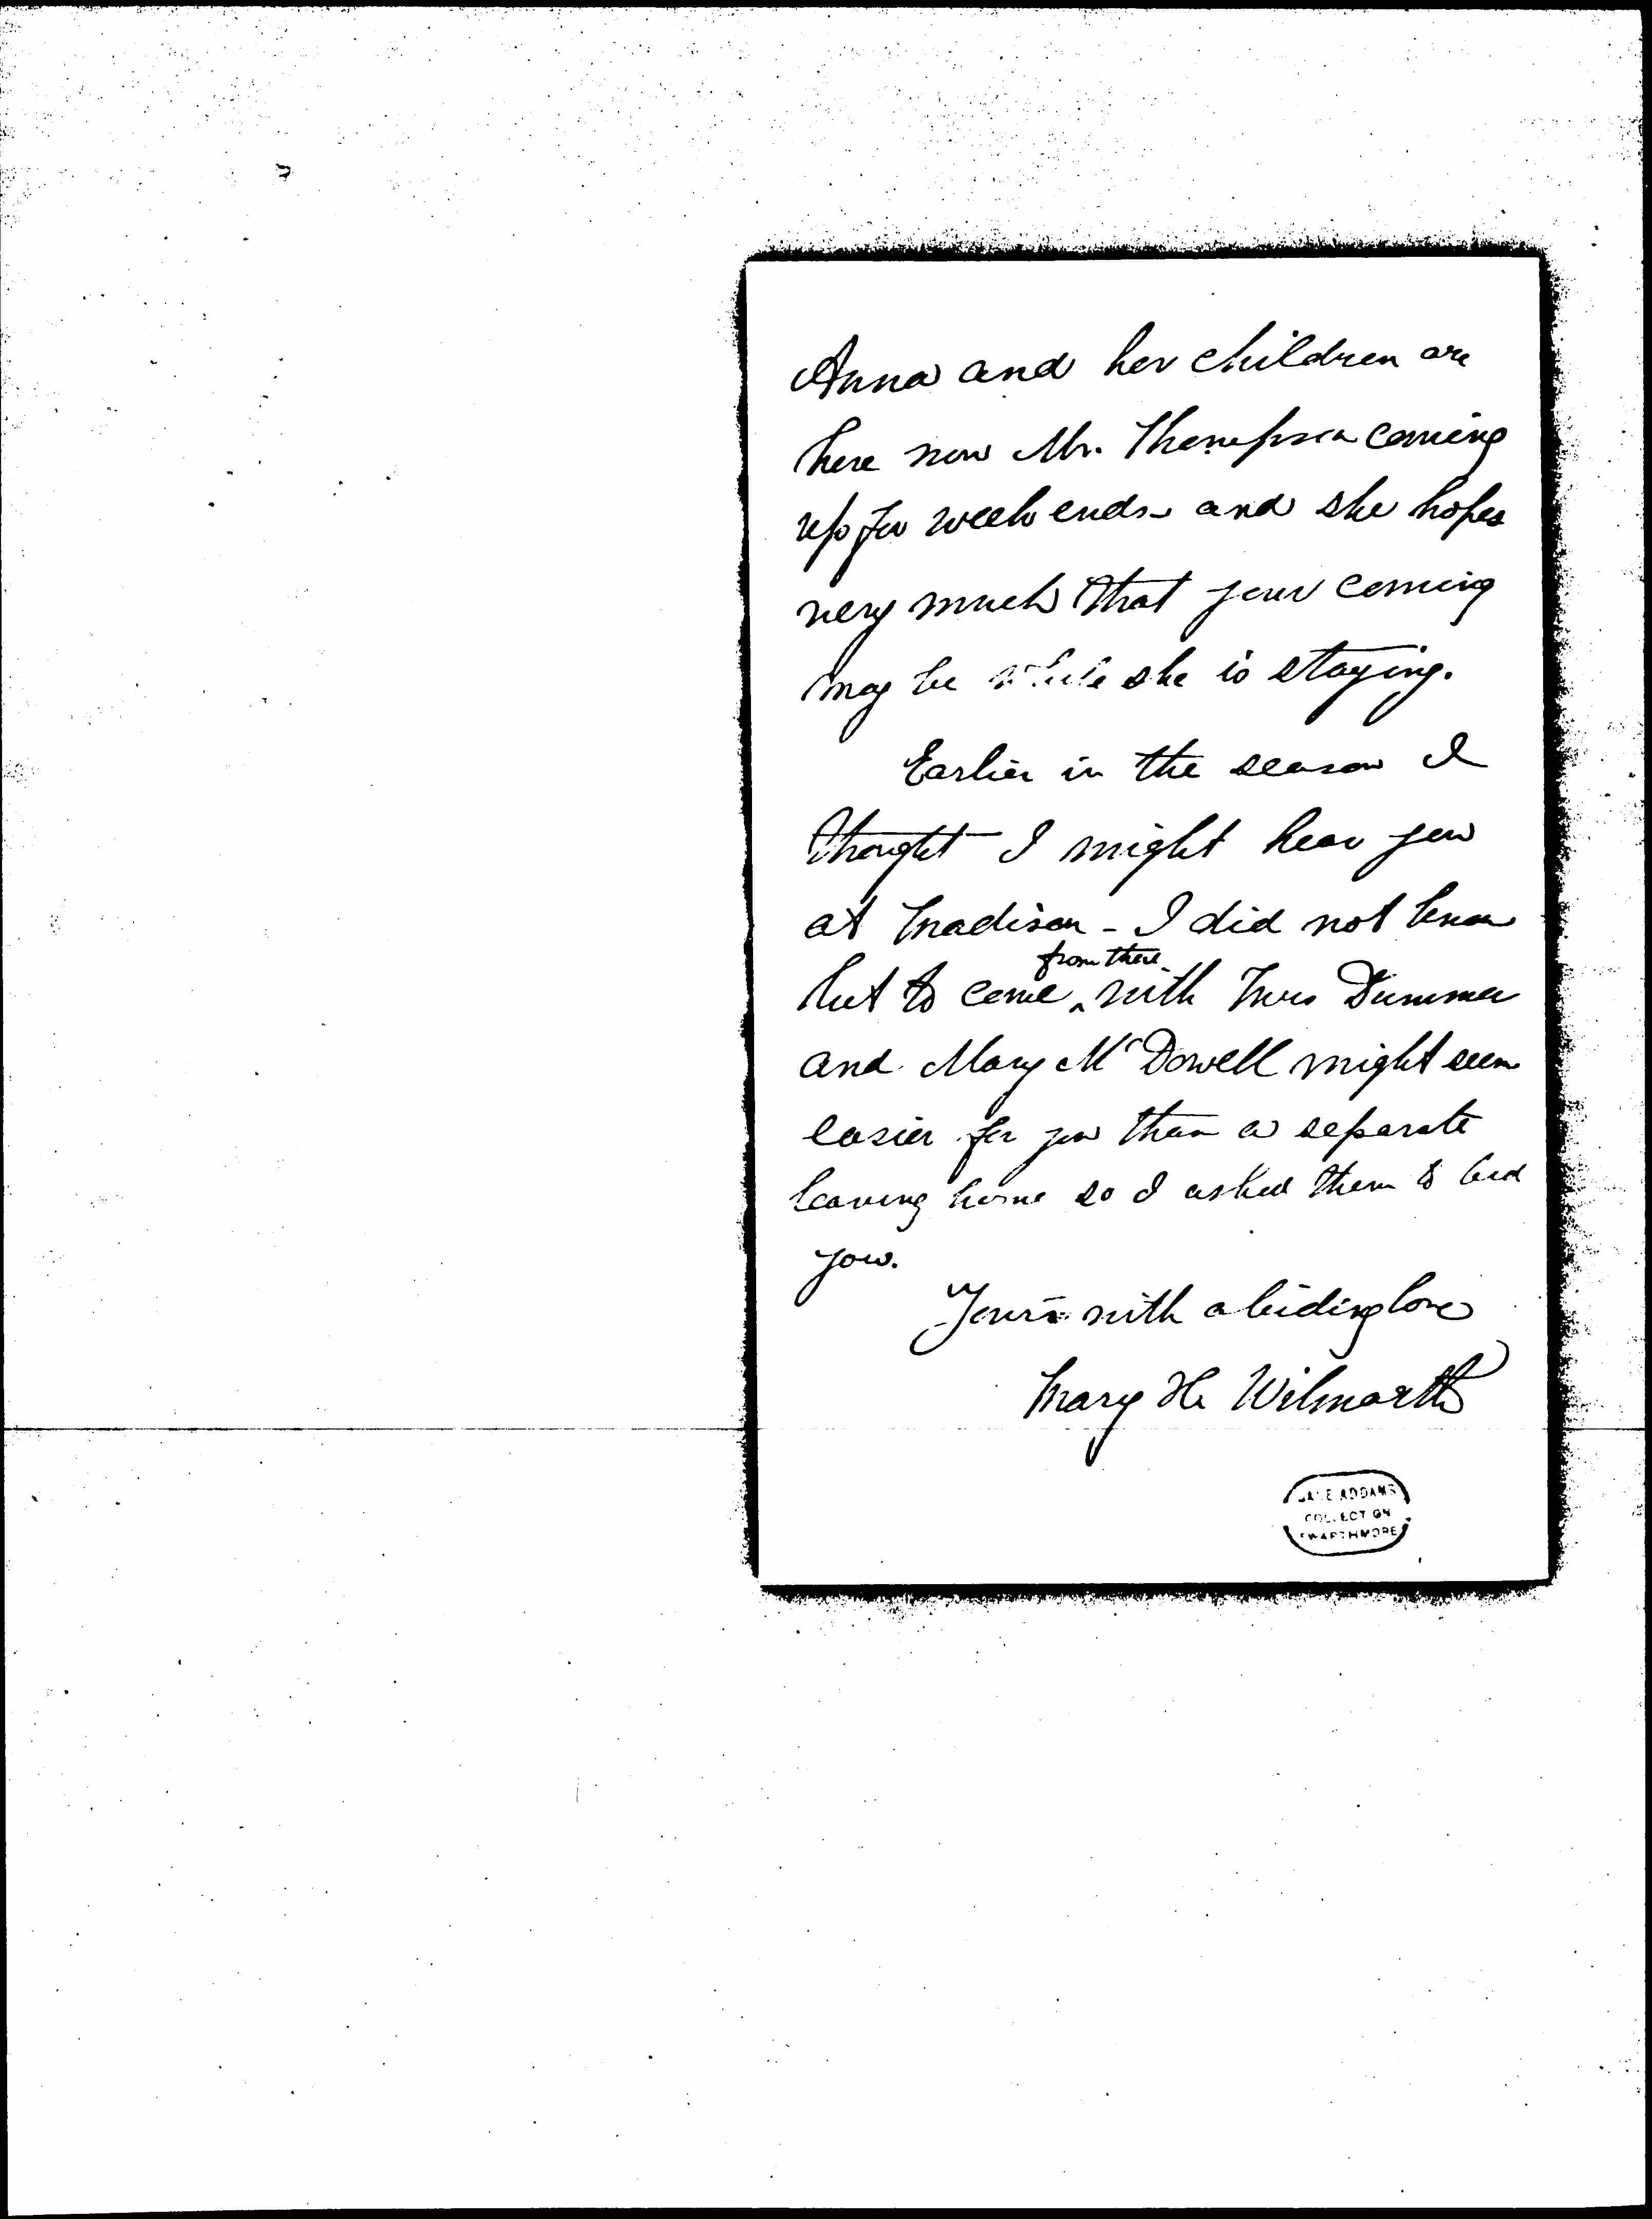 Anna and her children are
here now Mr. Thompson coming
up for week ends - and she hopes
very much that your coming
may be while she is staying.
Earlier in the season I
thought I might hear you
at Madison - I did not know
from there
but to come ^ with Mrs Dummer
and Mary McDowell might seem
easier for you than a separate
leaving home so I asked them to bid
you.
Yours with abiding love
Mary H. Wilmarth
JANE ADDAMS
COLLECTION
SWARTHMORE